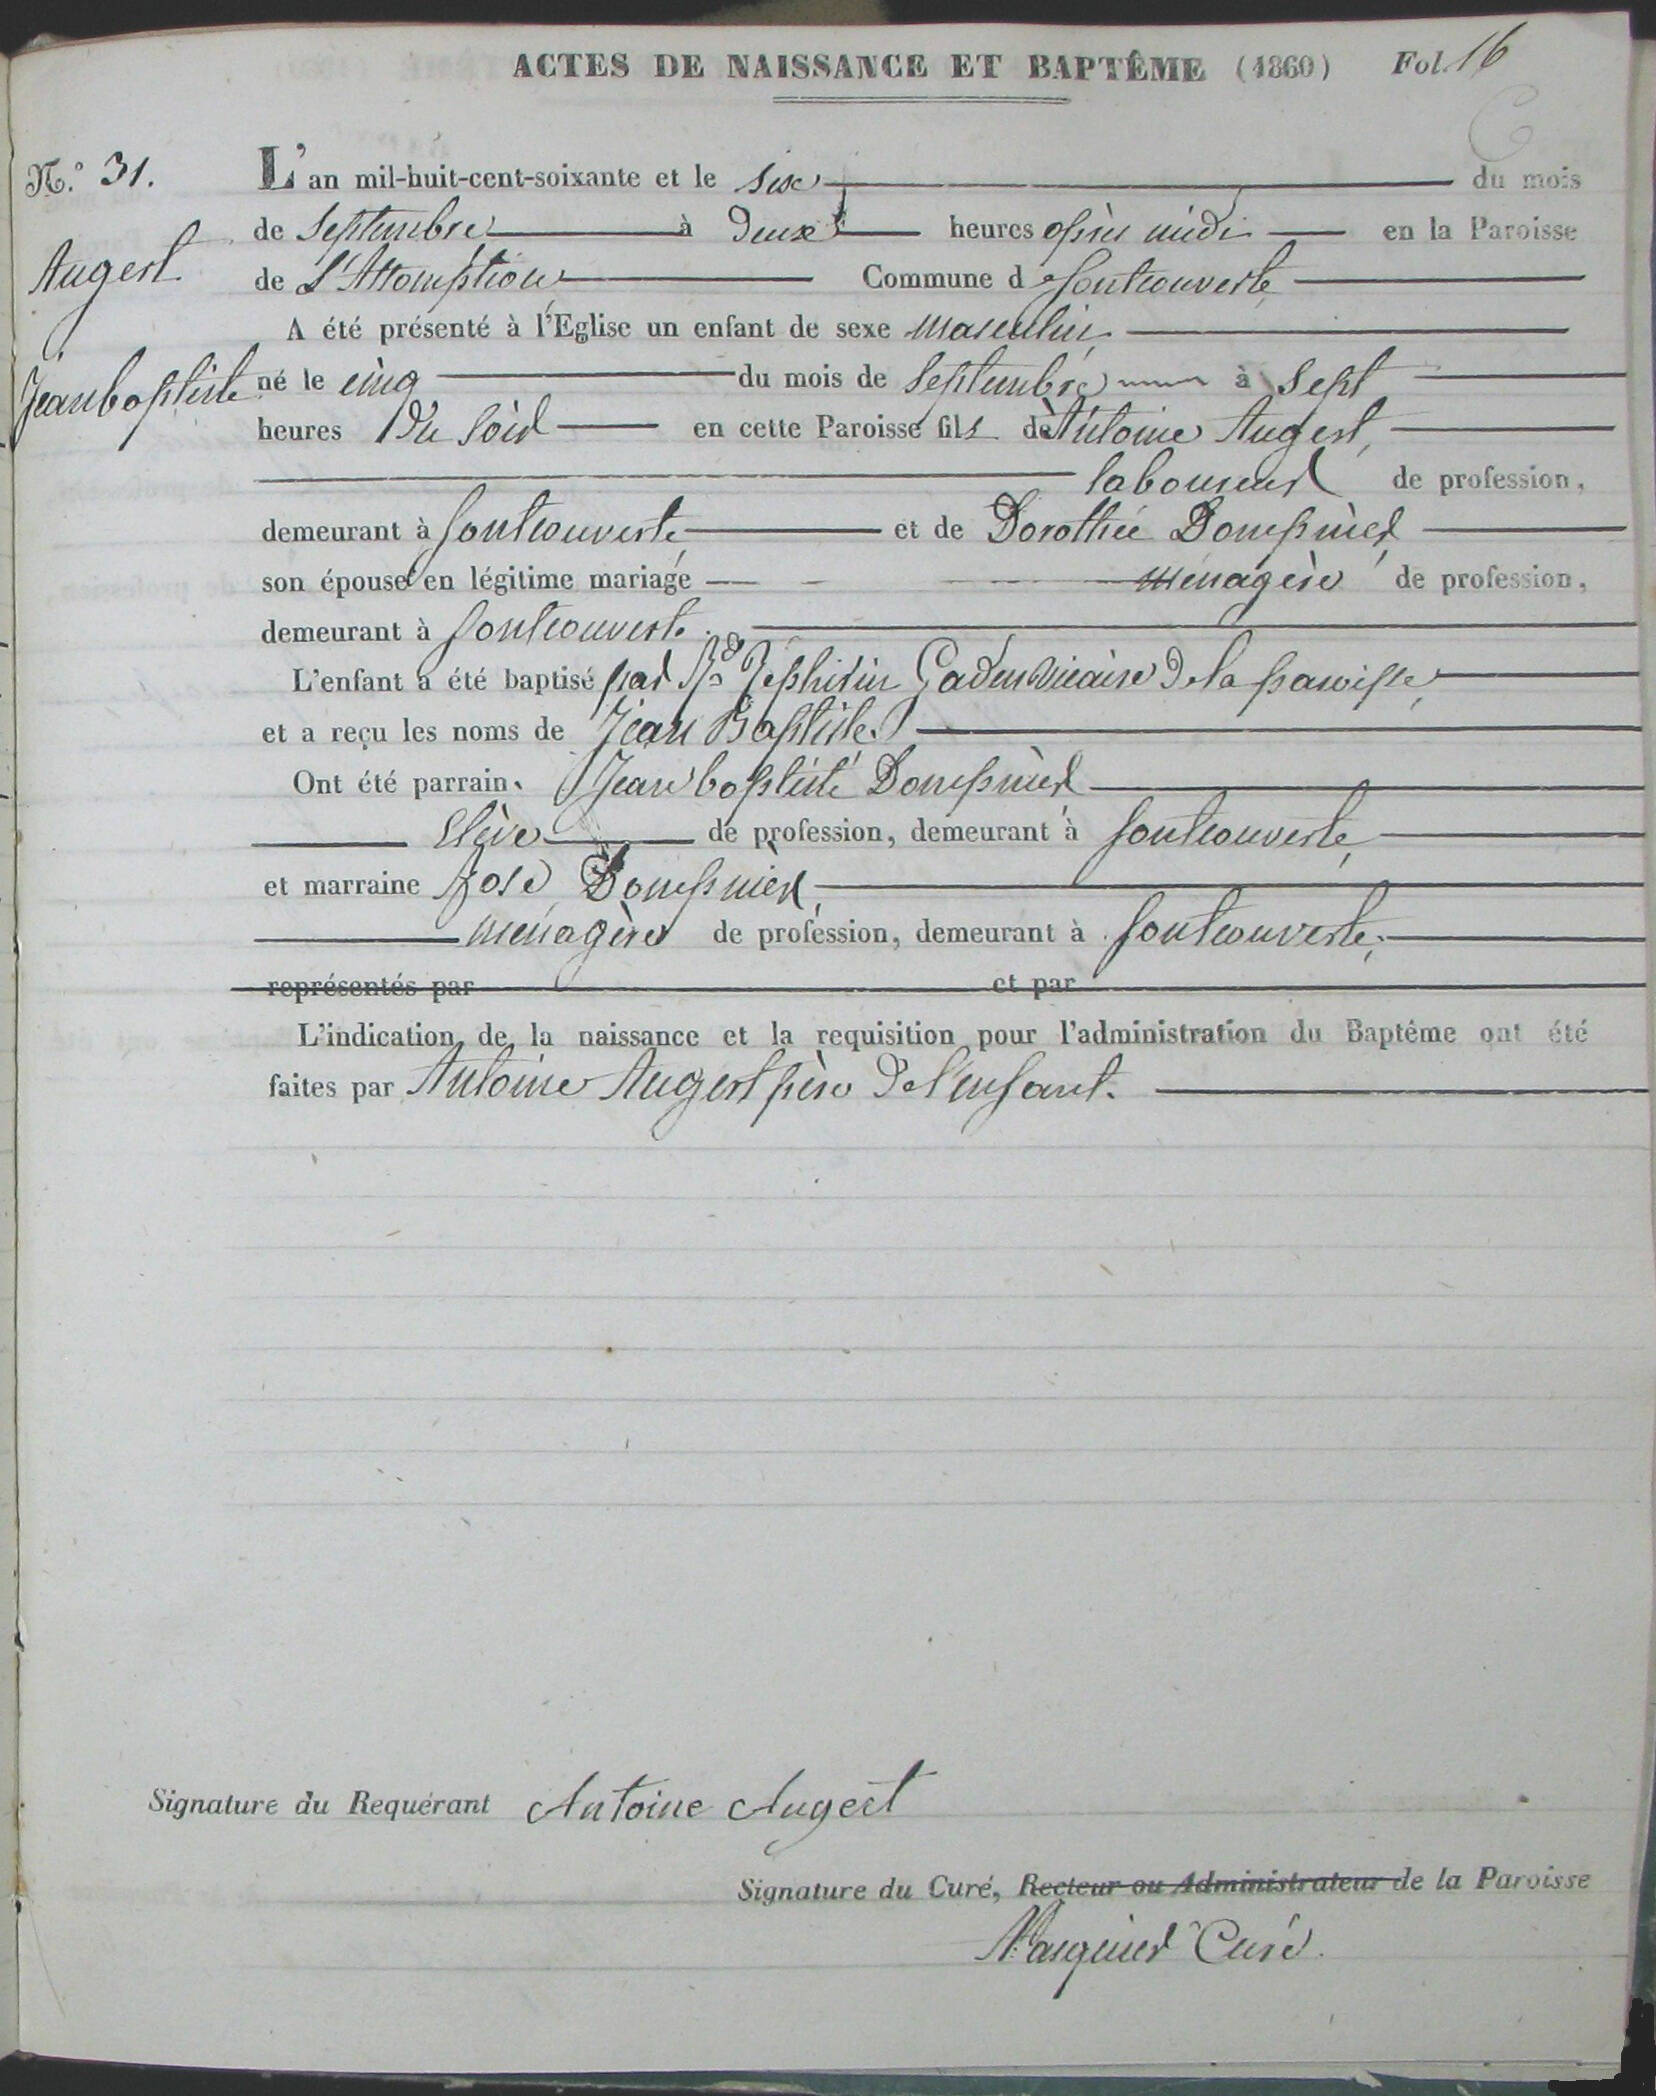 ACTES DE NAISSANCE ET BAPTÊME (1860) Fol. 16
N.° 31.
Augert
Jean baptiste
L'an mil-huit-cent-soixante et le six du mois
de Septembre à deux heures après midi en la Paroisse
de L'Assomption Commune de fontcouverte
A été présenté à l'Eglise un enfant de sexe masculin
né le cinq du mois de Septembre à Sept
heures du Soir en cette Paroisse fils de Antoine Augert,
laboureur de profession,
demeurant à fontcouverte et de Dorothée Dompnier
son épouse en légitime mariage ménagère de profession,
demeurant à fontcouverte.
L'enfant a été baptisé par Rd Zephirin Vicaire de la paroisse,
et a reçu les noms de Jean Baptiste.
Ont été parrain, Jean baptiste Dompnier
Elève de profession, demeurant à fontcouverte,
et marraine Rose Dompnier,
ménagère de profession, demeurant à fontcouverte,
représentés par et par
L'indication de la naissance et la requisition pour l'administration du Baptême ont été
faites par Antoine Augert père de l'enfant.
Signature du Requérant Antoine Augert
Signature du Curé, Recteur ou Administrateur de la Paroisse
Curé.